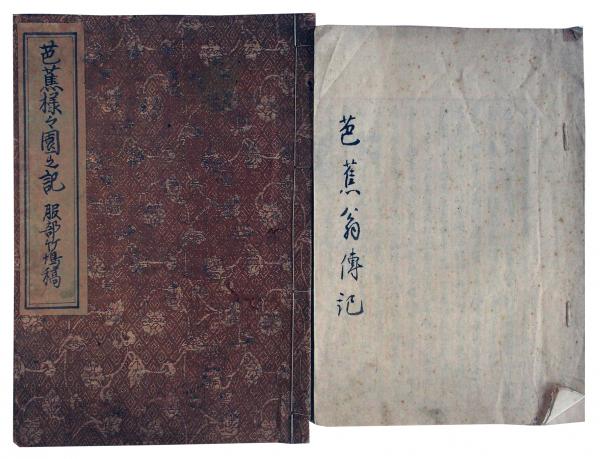 芭蕉様々園之記 服部竹塢稿
芭蕉翁傳記